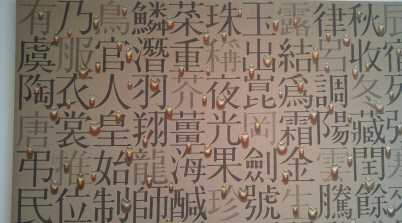 宿列張
秋收冬藏閏餘
律呂調陽雲騰
露結爲霜金生
玉出崑岡劍號
珠稱夜光果珍
菜重芥薑海鹹
鱗潛羽翔龍師
鳥官人皇始制
乃服衣裳推位
有虞陶唐弔民